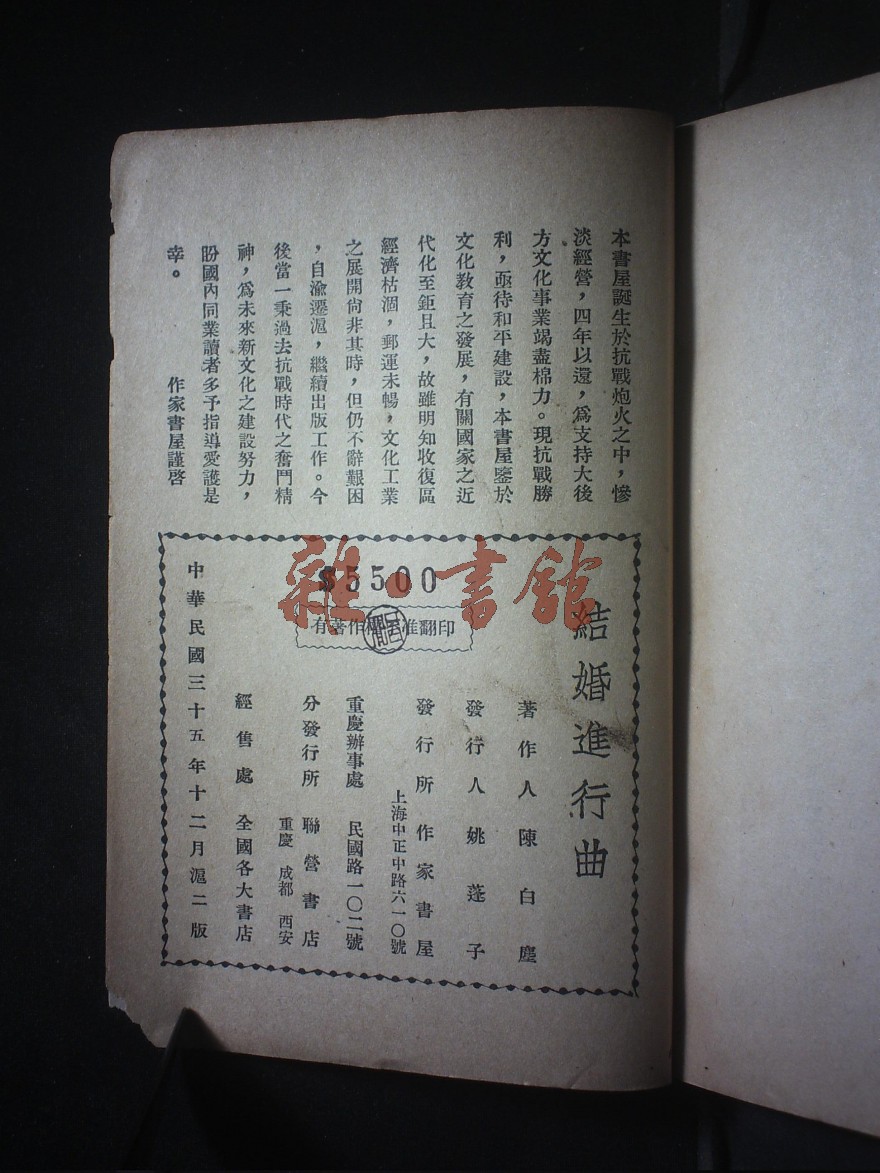 本書屋誕生於抗戰炮火之中，慘
淡經營，四年以還，爲支持大後
方文化事業竭盡棉力。現抗戰勝
利，亟待和平建設，本書屋鑒於
文化教育之發展，有關國家之近
代化至鉅且大，故雖明知收復區
經濟枯涸，郵運未暢，文化工業
之展開尙非其時，但仍不辭艱困
，自渝遷滬，繼續出版工作。今
後當一秉過去抗戰時代之奮鬥精
神，爲未來新文化之建設努力，
盼國內同業讀者多予指導愛護是
幸。
作家書屋謹啓
結婚進行曲
著作人 陳白塵
發行人 姚蓬子
發行所 作家書屋
上海中正中路六一〇號
重慶辦事處 民國路一〇二號
分發行所 聯營書店
重慶 成都 西安
經售處 全國各大書店
中華民國三十五年十二月滬二版
$5500
有著作 准翻印
雜·書館